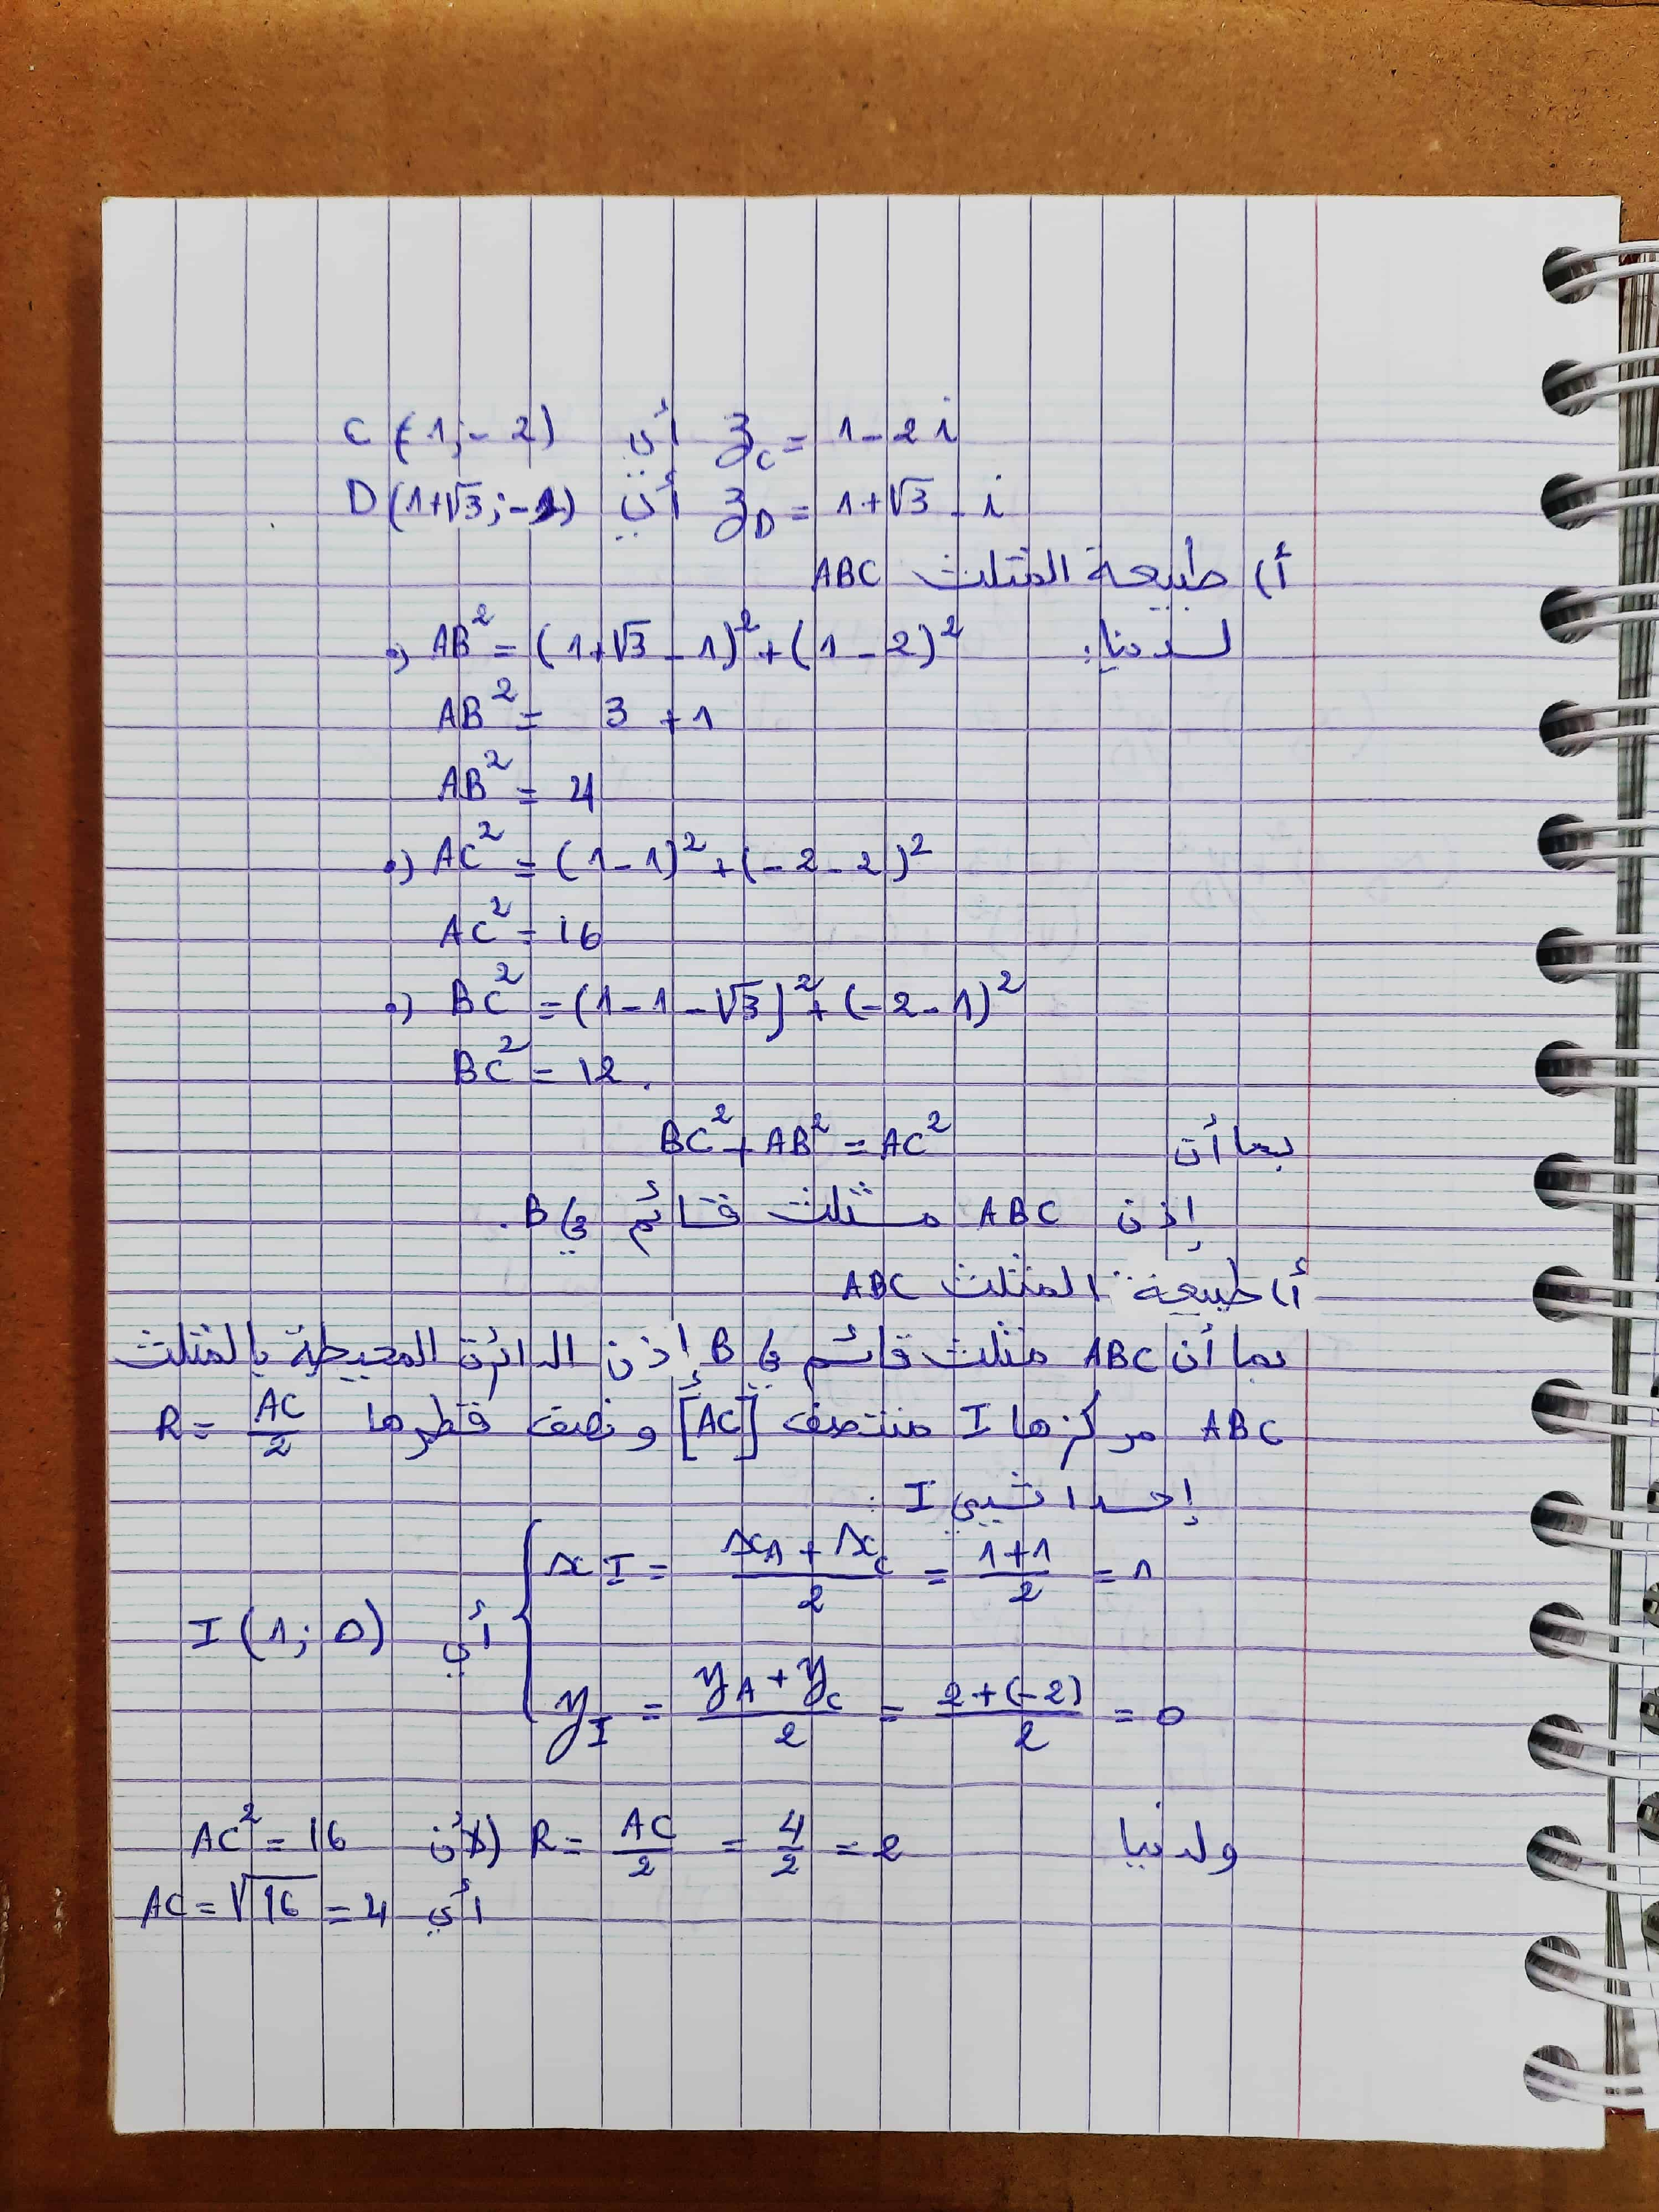 C(1; -2) أي z_C = 1 - 2i
D(1+√3; -1) أي z_D = 1+√3 - i
أ) طبيعة المثلث ABC
لدينا: •) AB² = (1+√3 - 1)² + (1 - 2)²
AB² = 3 + 1
AB² = 4
•) AC² = (1 - 1)² + (-2 - 2)²
AC² = 16
•) BC² = (1 - 1 - √3)² + (-2 - 1)²
BC² = 12.
بما أن BC² + AB² = AC²
إذن ABC مثلث قائم في B.
أ) طبيعة المثلث ABC
بما أن ABC مثلث قائم في B إذن الدائرة المحيطة بالمثلث
ABC مركزها I منتصف [AC] و نصف قطرها R = AC/2
إحداثيي I :
x_I = (x_A + x_C)/2 = (1+1)/2 = 1
أي I(1; 0)
y_I = (y_A + y_C)/2 = (2+(-2))/2 = 0
ولدينا R = AC/2 = 4/2 = 2 (لأن AC² = 16
أي AC = √16 = 4